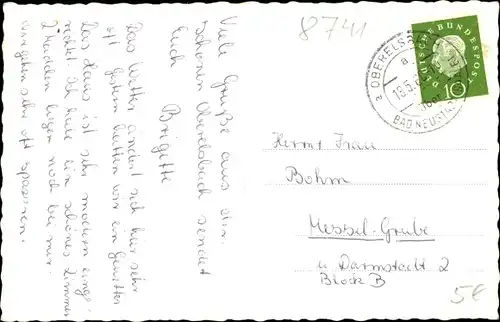 8741
Viele Grüße aus dem
schönen Oberelsbach sendet
Euch Brigitte
Das Wetter ändert sich hier sehr
oft gestern hatten wir ein Gewitter
Das Haus ist sehr modern einge-
richtet ich habe ein schönes Zimmer
2 Mädchen liegen noch bei mir.
wir gehen sehr oft spazieren.
DEUTSCHE BUNDESPOST
10
BAD NEUSTADT
Herrn + Frau
Böhm
Messel-Grube
b. Darmstadt 2
Block B
5€